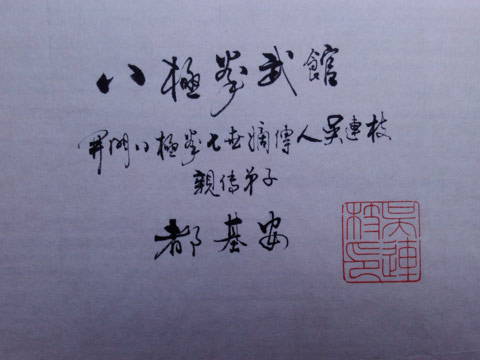 八極拳武館
開門八極拳七世嫡傳人吳連枝
親傳弟子
都基安
吳連枝印